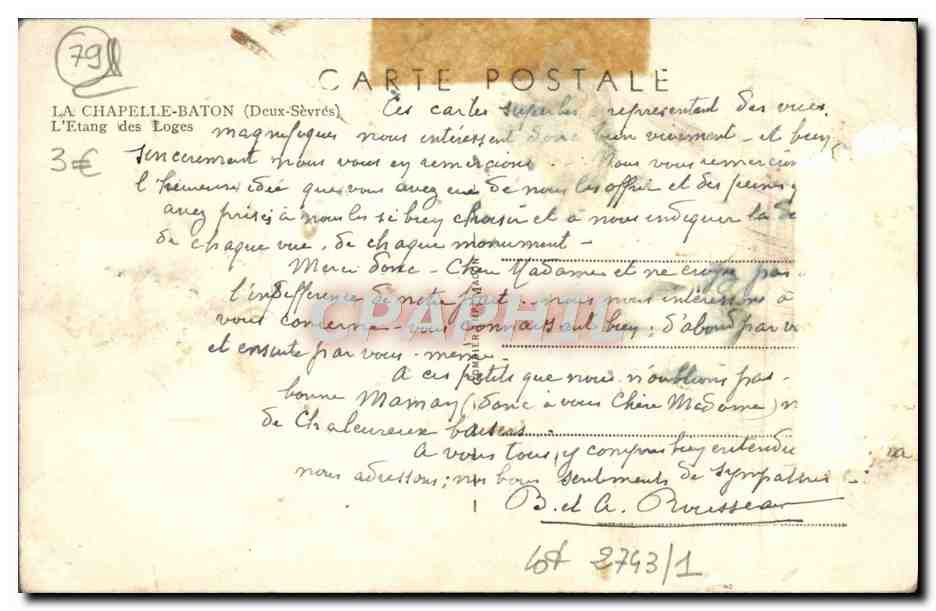 79
CARTE POSTALE
LA CHAPELLE-BATON (Deux-Sèvres)
L'Etang des Loges
3€
Ces cartes superbes représentent des vues
magnifiques nous intéressent donc bien vivement - et bien
sincèrement nous vous en remercions. Nous vous remercions
l'heureuse idée que vous avez eue de nous les offrir et des peines
avez prises à nous les si bien choisir et à nous indiquer la
de chaque vue, de chaque monument -
Merci donc - Chère Madame et ne croyez pas
l'indifférence de notre part - nous nous intéressons à
vous concerne - vous connaissant bien : d'abord par
et ensuite par vous-même -
A ces petits que nous n'oublions pas -
bonne Maman (donc à vous Chère Madame)
de Chaleureux baisers
A vous tous, y compris bien entendu
nous adressons ; nos bons sentiments de sympathie -
B. et A. Rousseau
COMBIER IMP. MACON
CPAPHIL
lot 2743/1